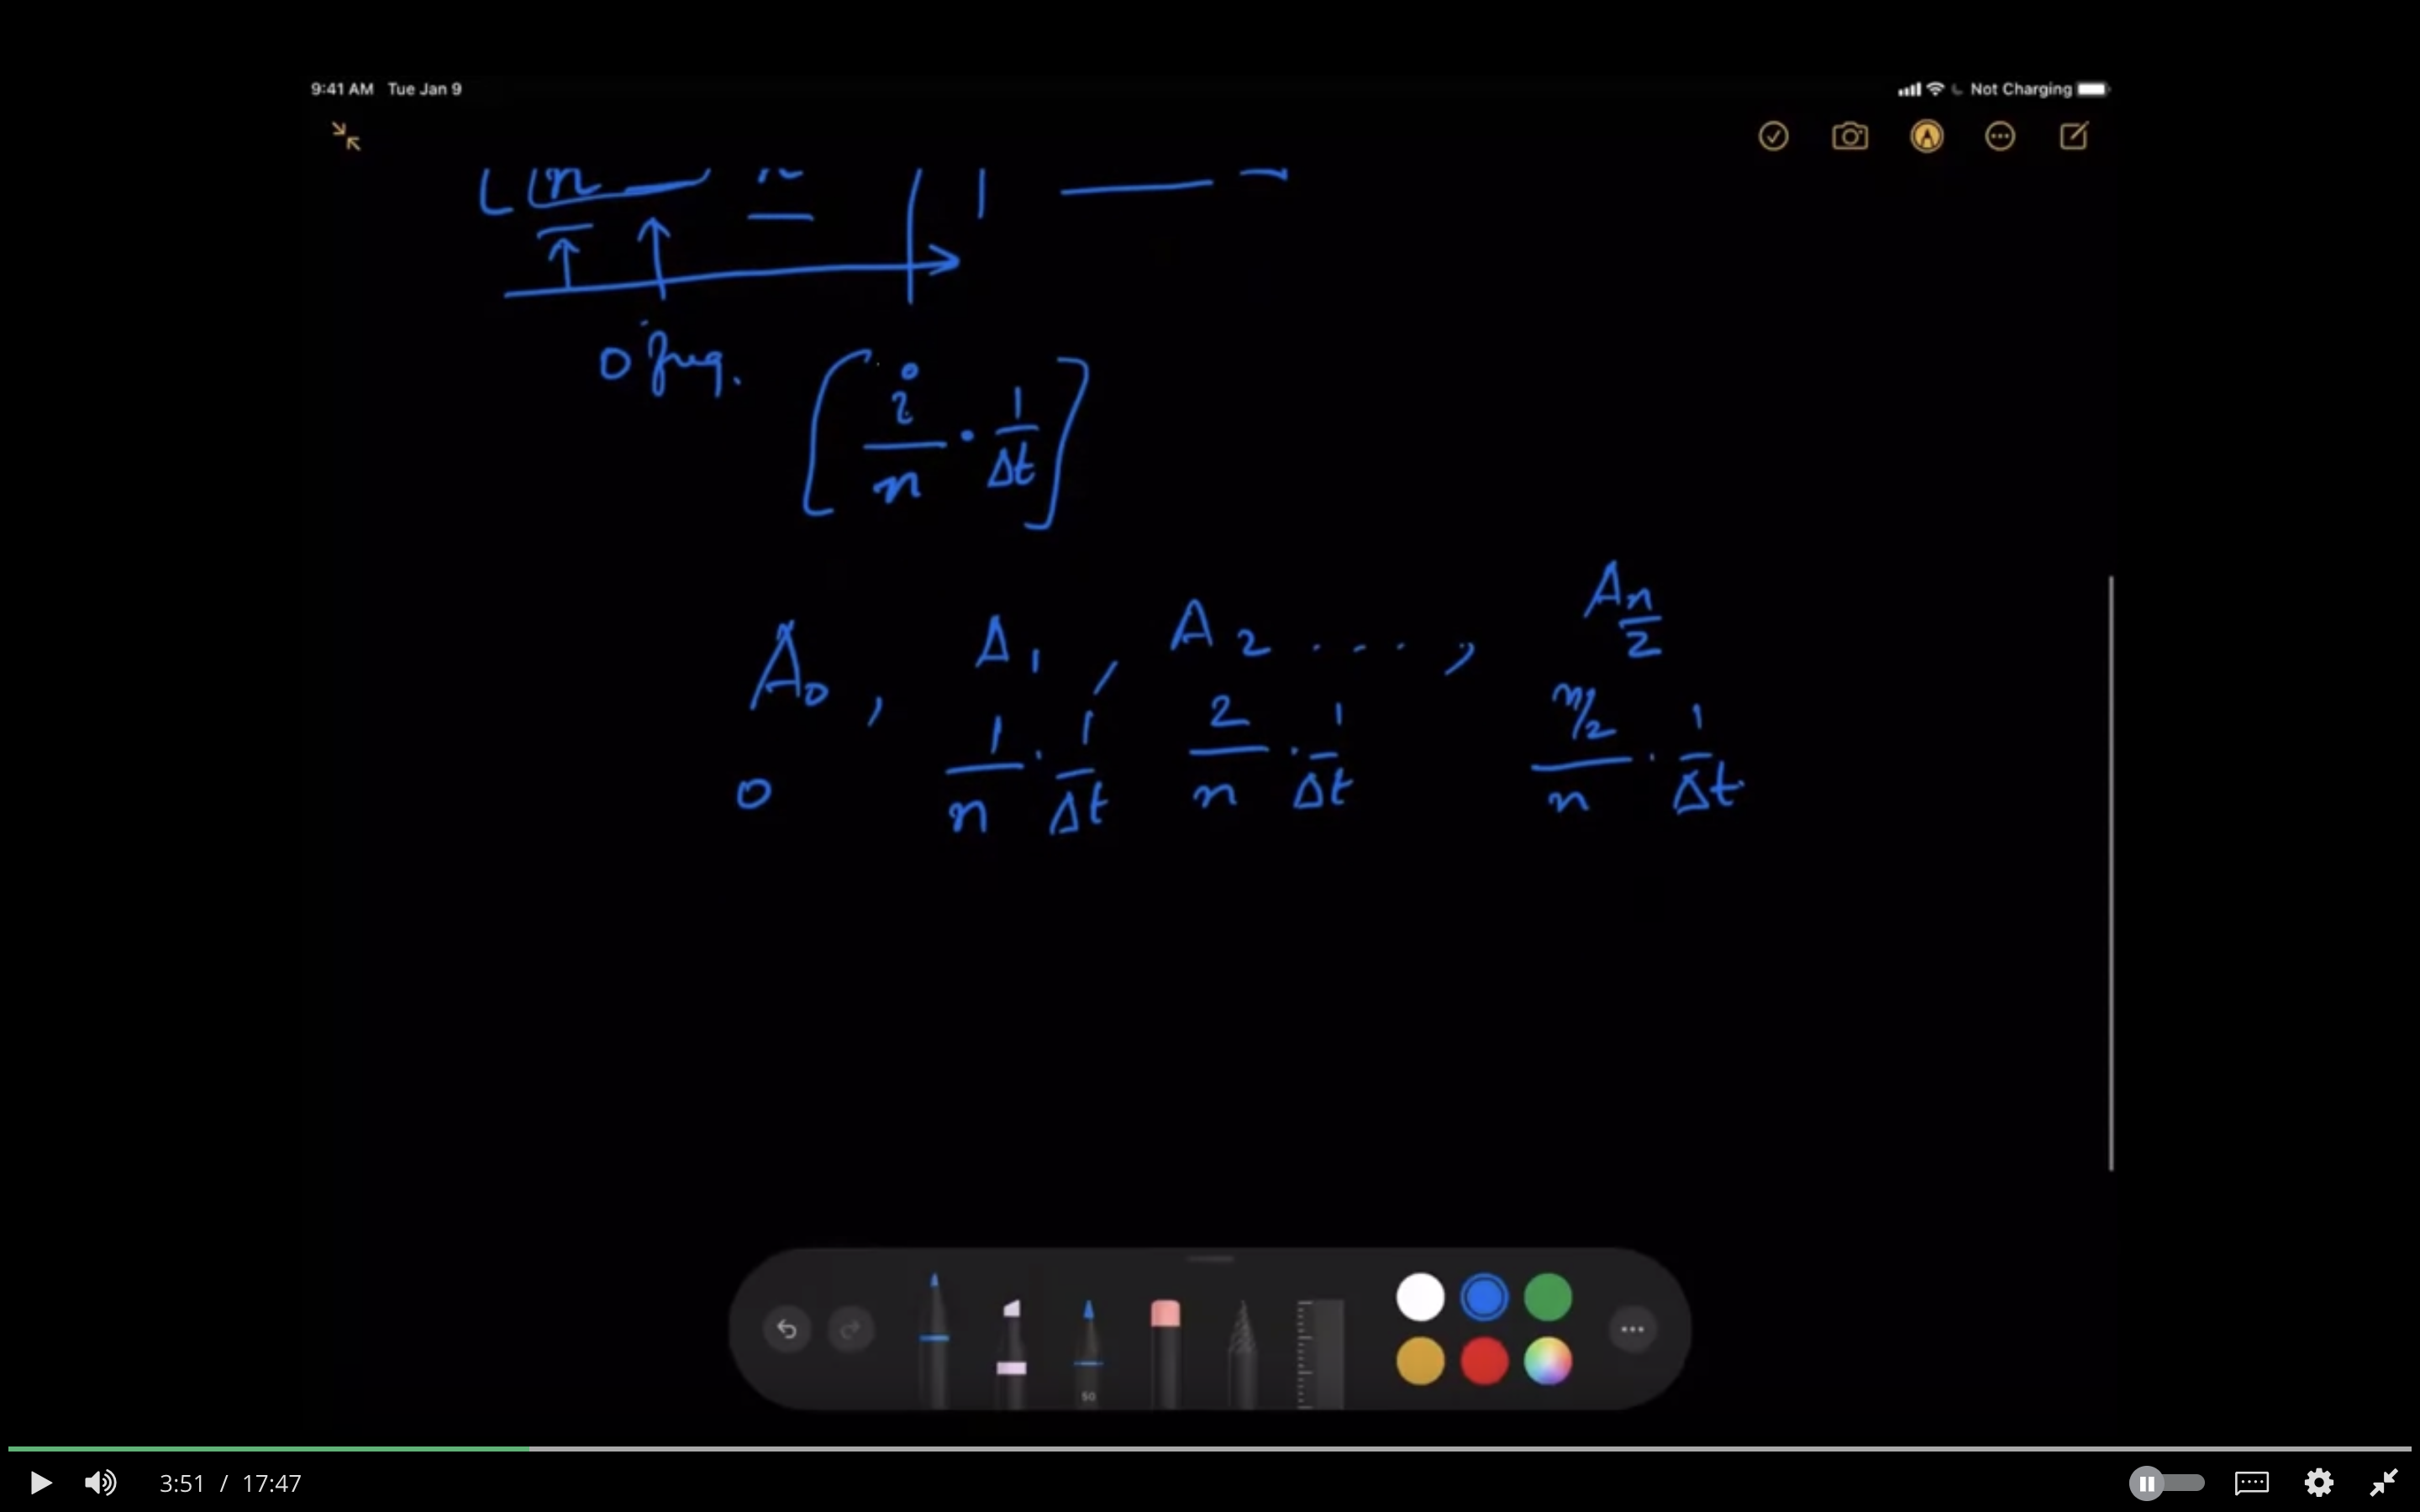 9:41 AM Tue Jan 9 Not Charging
n
0 freq.
[ i/n · 1/Δt ]
A₀ , A₁ , A₂ . . . . , A n/2
0 1/n · 1/Δt 2/n · 1/Δt n/2 / n · 1/Δt
50
3:51 / 17:47